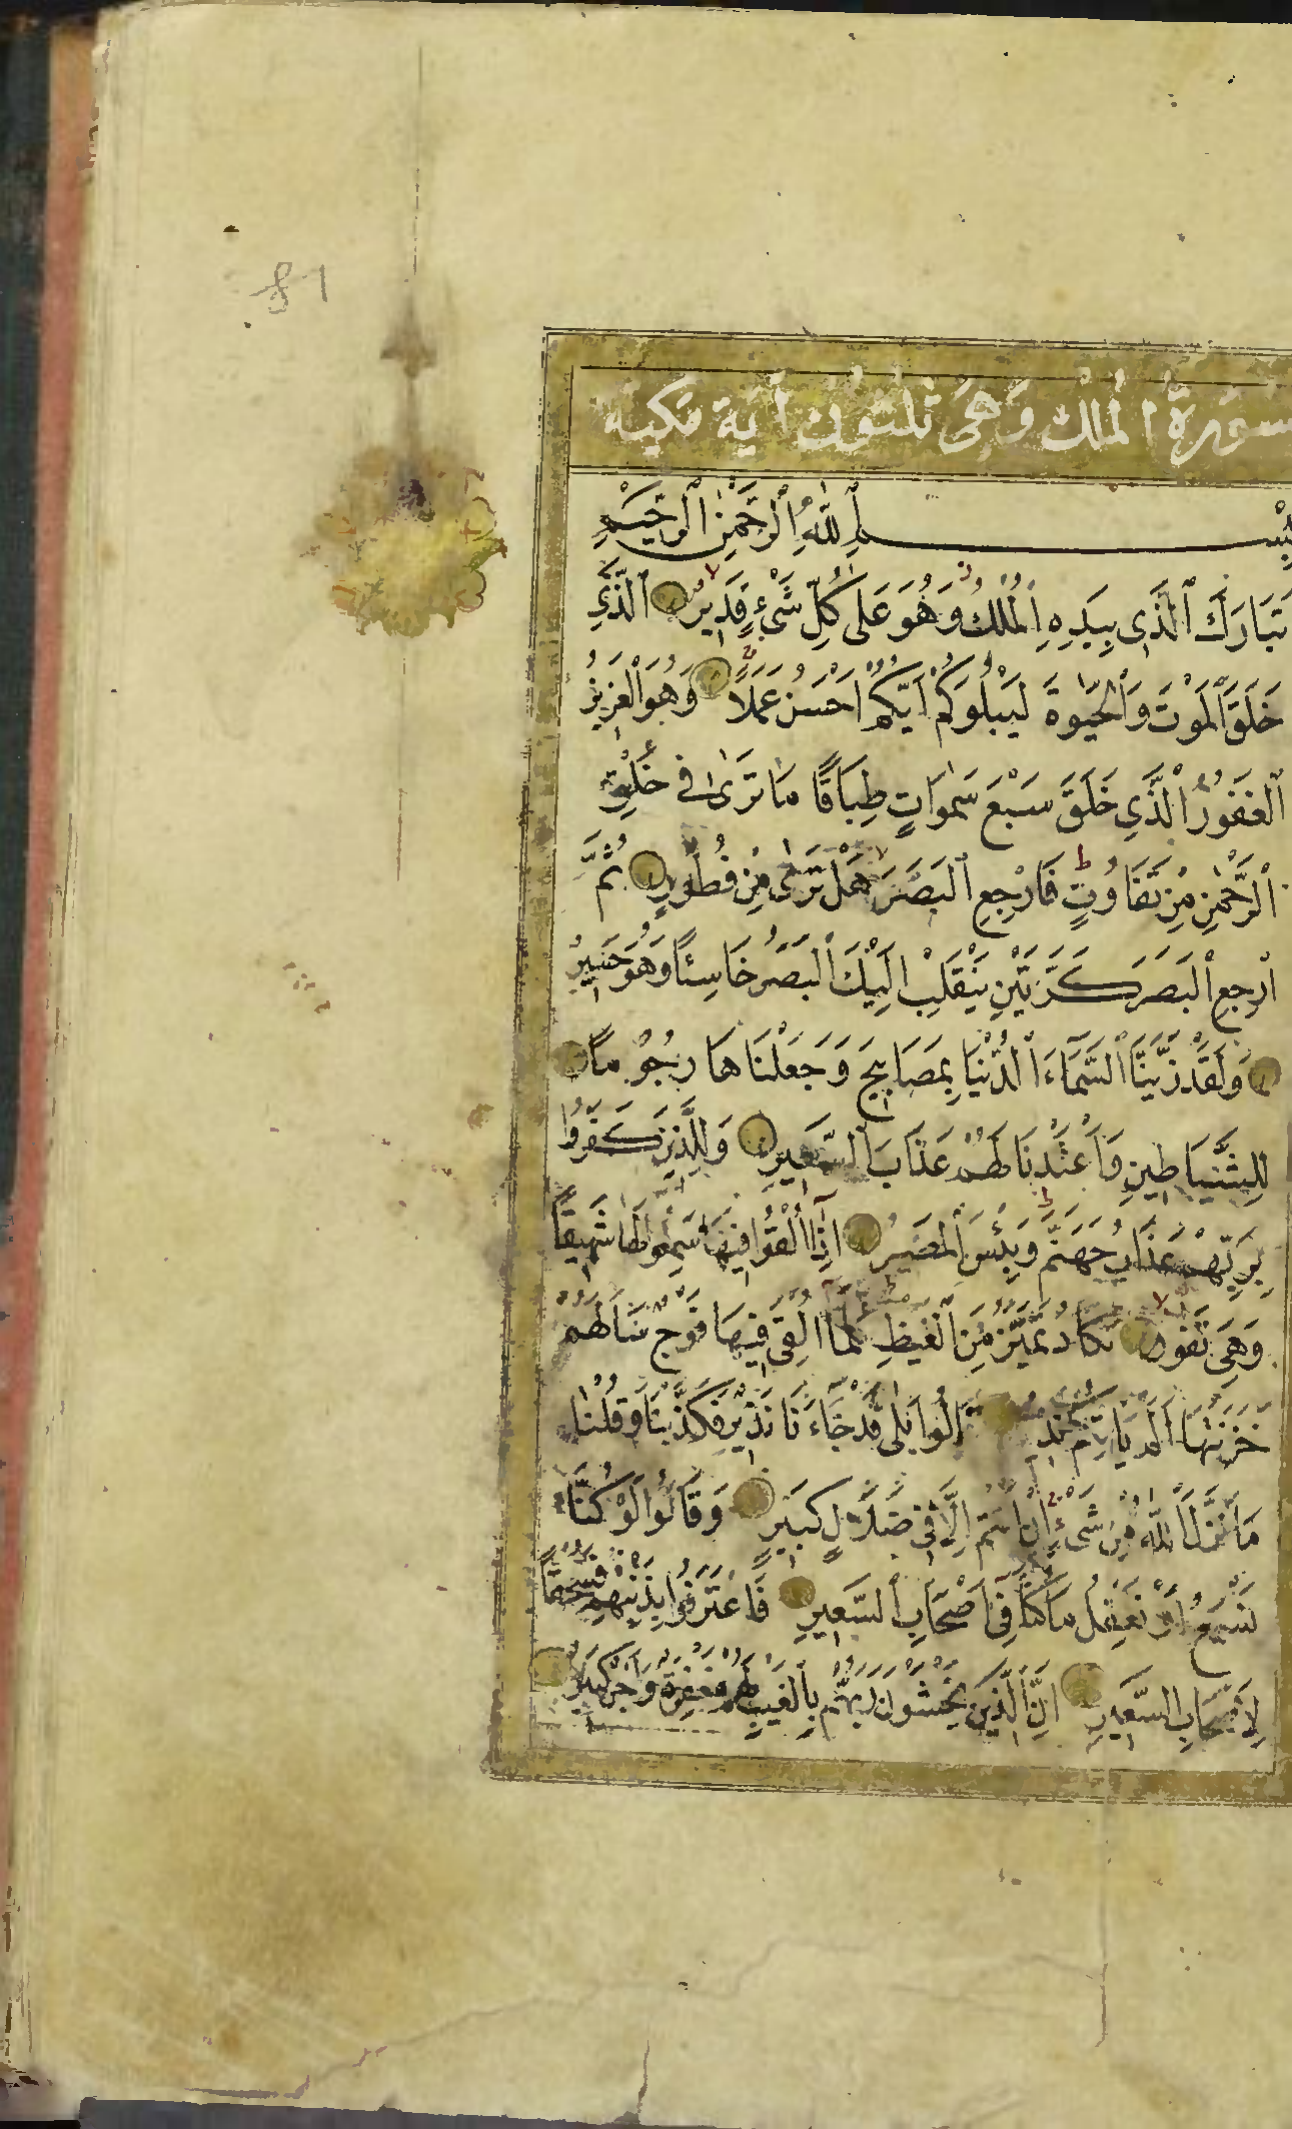 81
سورة الملك وهى ثلثون آية مكية
بِسْمِ اللّٰهِ الرَّحْمٰنِ الرَّحِيمِ
تَبَارَكَ الَّذِى بِيَدِهِ الْمُلْكُ وَهُوَ عَلٰى كُلِّ شَىْءٍ قَدِيرٌ الَّذِى
خَلَقَ الْمَوْتَ وَالْحَيٰوةَ لِيَبْلُوَكُمْ اَيُّكُمْ اَحْسَنُ عَمَلًا وَهُوَ الْعَزِيزُ
الْغَفُورُ الَّذِى خَلَقَ سَبْعَ سَمٰوَاتٍ طِبَاقًا مَا تَرٰى فِى خَلْقِ
الرَّحْمٰنِ مِنْ تَفَاوُتٍ فَارْجِعِ الْبَصَرَ هَلْ تَرٰى مِنْ فُطُورٍ ثُمَّ
ارْجِعِ الْبَصَرَ كَرَّتَيْنِ يَنْقَلِبْ اِلَيْكَ الْبَصَرُ خَاسِئًا وَهُوَ حَسِيرٌ
وَلَقَدْ زَيَّنَّا السَّمَاءَ الدُّنْيَا بِمَصَابِيحَ وَجَعَلْنَاهَا رُجُومًا
لِلشَّيَاطِينِ وَاَعْتَدْنَا لَهُمْ عَذَابَ السَّعِيرِ وَلِلَّذِينَ كَفَرُوا
بِرَبِّهِمْ عَذَابُ جَهَنَّمَ وَبِئْسَ الْمَصِيرُ اِذَا اُلْقُوا فِيهَا سَمِعُوا لَهَا شَهِيقًا
وَهِىَ تَفُورُ تَكَادُ تَمَيَّزُ مِنَ الْغَيْظِ كُلَّمَا اُلْقِىَ فِيهَا فَوْجٌ سَاَلَهُمْ
خَزَنَتُهَا اَلَمْ يَاْتِكُمْ نَذِيرٌ قَالُوا بَلٰى قَدْ جَاءَنَا نَذِيرٌ فَكَذَّبْنَا وَقُلْنَا
مَا نَزَّلَ اللّٰهُ مِنْ شَىْءٍ اِنْ اَنْتُمْ اِلَّا فِى ضَلَالٍ كَبِيرٍ وَقَالُوا لَوْ كُنَّا
نَسْمَعُ اَوْ نَعْقِلُ مَا كُنَّا فِى اَصْحَابِ السَّعِيرِ فَاعْتَرَفُوا بِذَنْبِهِمْ فَسُحْقًا
لِاَصْحَابِ السَّعِيرِ اِنَّ الَّذِينَ يَخْشَوْنَ رَبَّهُمْ بِالْغَيْبِ لَهُمْ مَغْفِرَةٌ وَاَجْرٌ كَبِيرٌ